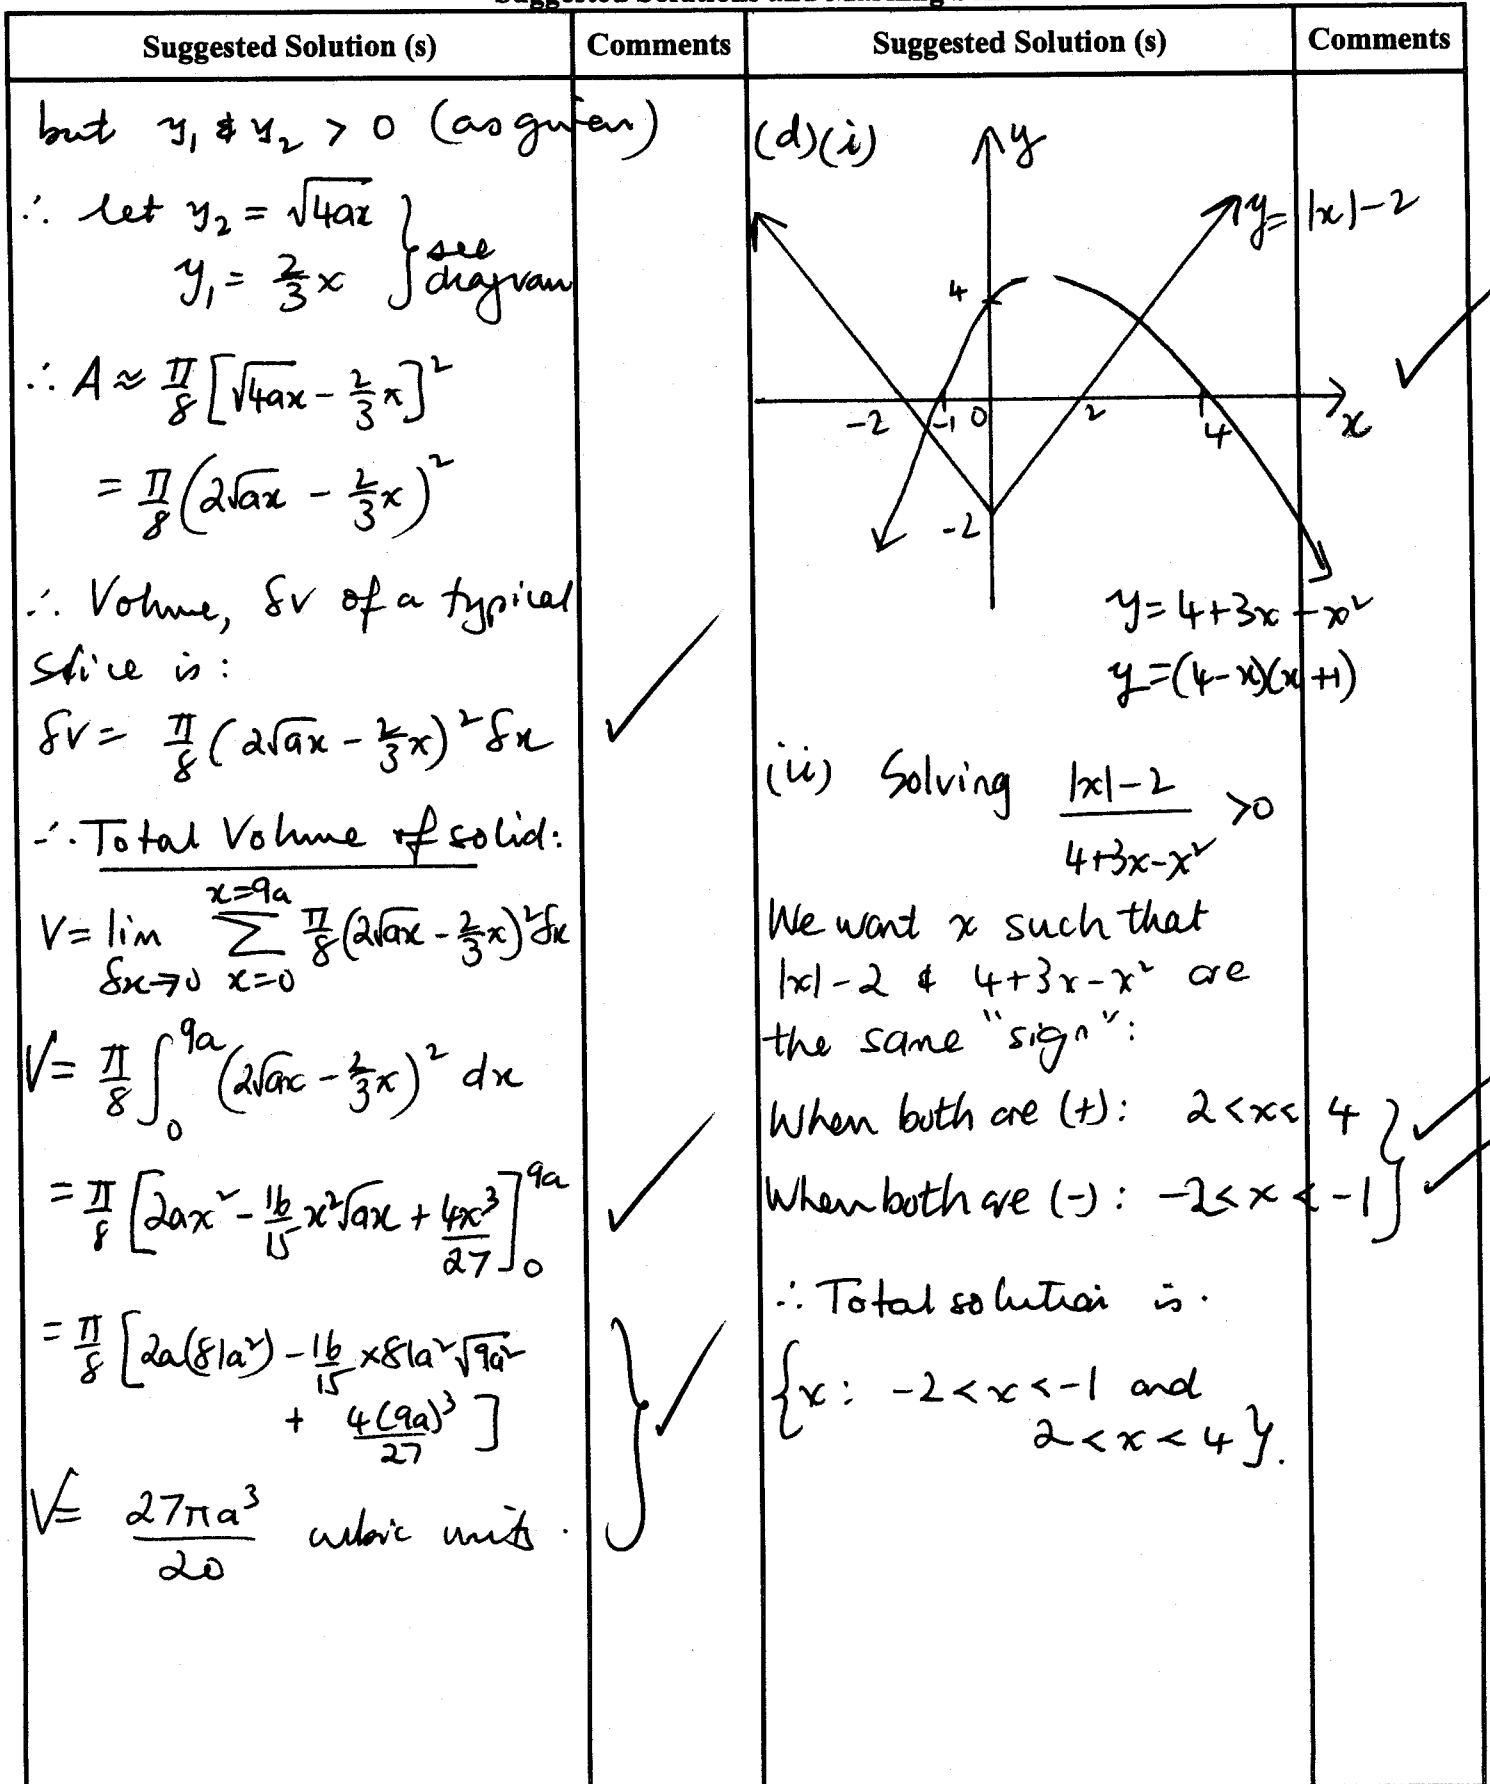 Suggested Solution (s)
Comments
but y₁ & y₂ > 0 (as given)
∴ let y₂ = √(4ax)
y₁ = 2/3 x } see diagram
∴ A ≈ π/8 [√(4ax) - 2/3 x]²
= π/8 (2√(ax) - 2/3 x)²
∴ Volume, δv of a typical
slice is:
δv = π/8 (2√(ax) - 2/3 x)² δx
∴ Total Volume of solid:
V = lim δx→0 Σ x=0 x=9a π/8 (2√(ax) - 2/3 x)² δx
V = π/8 ∫₀^9a (2√(ax) - 2/3 x)² dx
= π/8 [2ax² - 16/15 x²√(ax) + 4x³/27]₀^9a
= π/8 [2a(81a²) - 16/15 × 81a² √(9a²)
+ 4(9a)³/27]
V = 27πa³/20 cubic units.
Suggested Solution (s)
Comments
(d)(i)
y
y = |x| - 2
4
-2
-1
0
2
4
x
-2
y = 4 + 3x - x²
y = (4 - x)(x + 1)
(ii) Solving (|x| - 2)/(4 + 3x - x²) > 0
We want x such that
|x| - 2 & 4 + 3x - x² are
the same "sign":
When both are (+): 2 < x < 4
When both are (-): -2 < x < -1
∴ Total solution is.
{x: -2 < x < -1 and
2 < x < 4}.